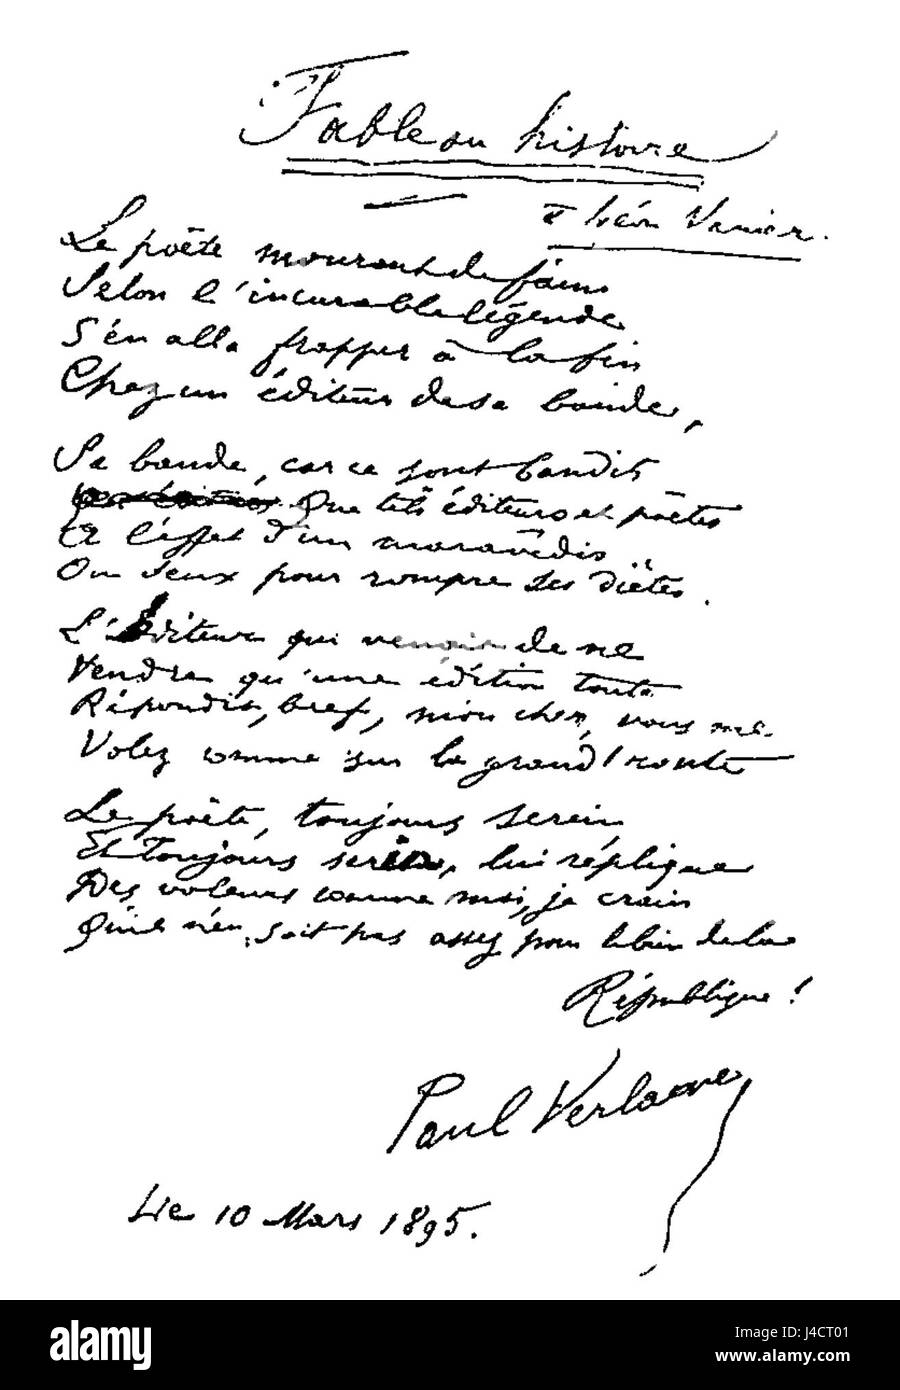 Fable ou histoire
à Léon Vanier.
Le poëte mourant de faim
Selon l'incurable légende
S'en alla frapper à la fin
Chez un éditeur de sa bande,
Sa bande, car ce sont bandits
Que tels éditeurs et poëtes
A l'effet d'un maravédis
Ou deux pour rompre ses diètes.
L'Éditeur qui venait de ne
Vendre qu'une édition toute
Répondit, bref, mon cher, vous me
Volez comme sur la grand' route
Le poëte, toujours serein
Et toujours serin, lui réplique
Des voleurs comme moi, je crain
Qu'il n'en soit pas assez pour le bien de la
République !
Paul Verlaine
Le 10 Mars 1895.
alamy
Image ID: J4CT01
www.alamy.com